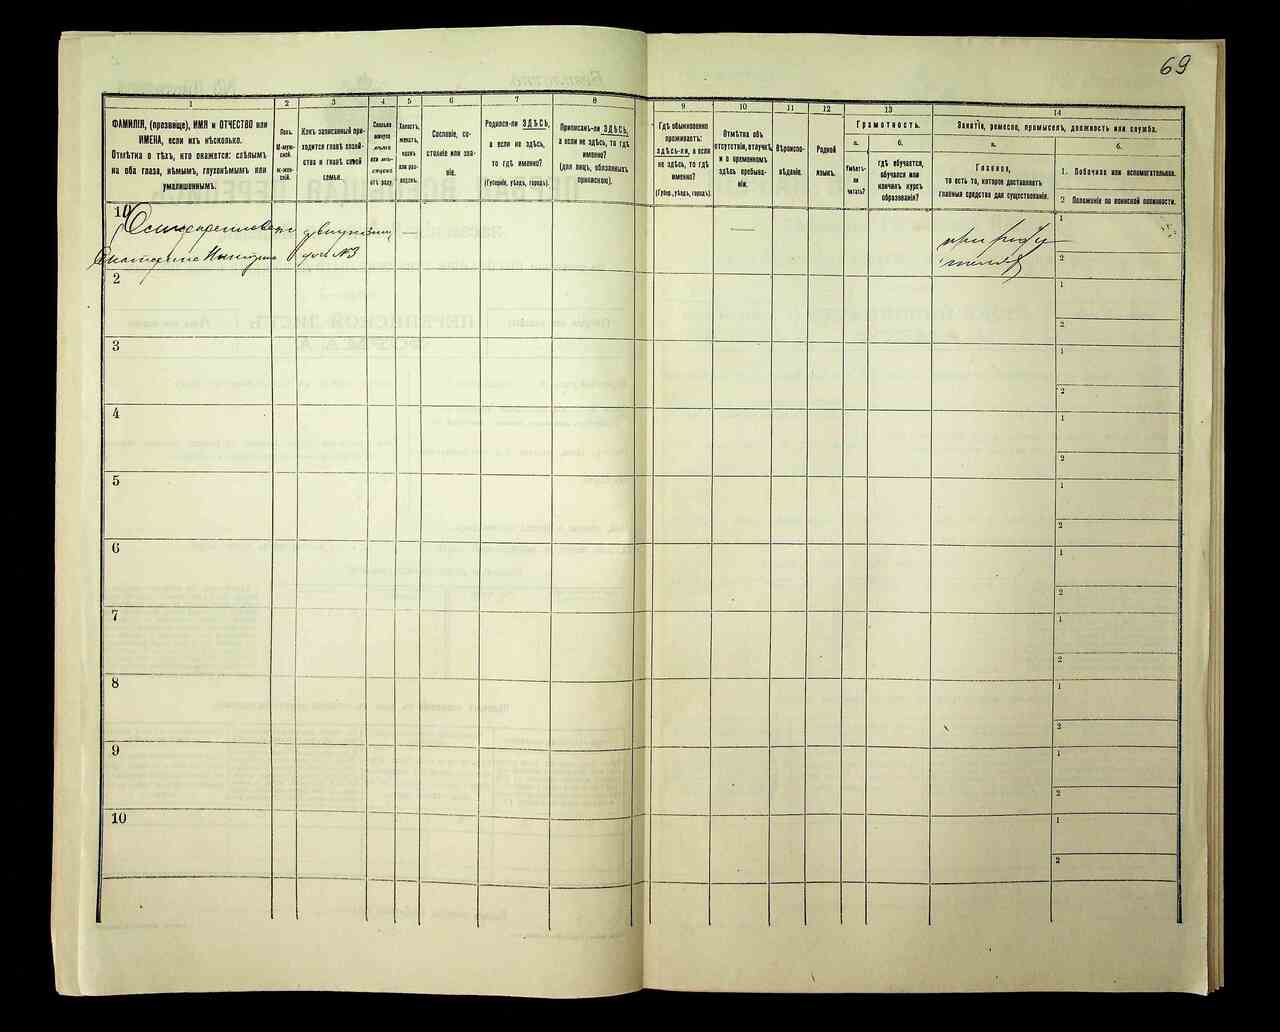 69
1
2
3
4
5
6
7
8
9
10
11
12
13
14
ФАМИЛІЯ, (прозвище), ИМЯ и ОТЧЕСТВО или
ИМЕНА, если ихъ нѣсколько.
Отмѣтка о тѣхъ, кто окажется: слѣпымъ
на оба глаза, нѣмымъ, глухонѣмымъ или
умалишеннымъ.
Полъ.
М-муж-
ской.
Ж-жен-
скій.
Какъ записанный при-
ходится главѣ хозяй-
ства и главѣ своей
семьи.
Сколько
минуло
лѣтъ
или мѣ-
сяцевъ
отъ роду.
Холостъ,
женатъ,
вдовъ
или раз-
веденъ.
Сословіе, со-
стояніе или зва-
ніе.
Родился-ли ЗДѢСЬ,
а если не здѣсь,
то гдѣ именно?
(Губернія, уѣздъ, городъ).
Приписанъ-ли ЗДѢСЬ,
а если не здѣсь, то гдѣ
именно?
(для лицъ, обязанныхъ
припискою).
Гдѣ обыкновенно
проживаетъ:
здѣсь-ли, а если
не здѣсь, то гдѣ
именно?
(Губер., уѣздъ, городъ).
Отмѣтка объ
отсутствіи, отлучкѣ
и о временномъ
здѣсь пребыва-
ніи.
Вѣроиспо-
вѣданіе.
Родной
языкъ.
Грамотность.
а.
Умѣетъ-
ли
читать?
б.
гдѣ обучается,
обучался или
кончилъ курсъ
образованія?
Занятіе, ремесло, промыселъ, должность или служба.
а.
Главное,
то есть то, которое доставляетъ
главныя средства для существованія.
б.
1. Побочное или вспомогательное.
2 Положеніе по воинской повинности.
1
2
№3
2
1
2
3
1
2
4
1
2
5
1
2
6
1
2
7
1
2
8
1
2
9
1
2
10
1
2